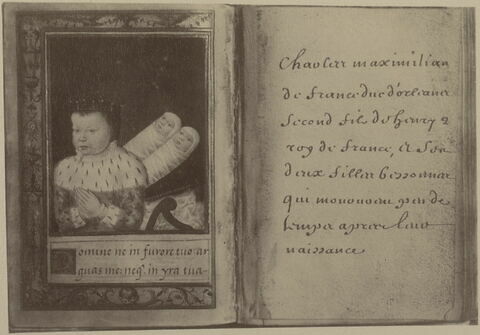 Domine ne in furore tuo ar
guas me: neq; in yra tua
Charles maximilian
de france duc d'orleans
second fils de henry 2
roy de france, et ses
deux filles bessonnes
qui moururent peu de
temps apres leur
naissance